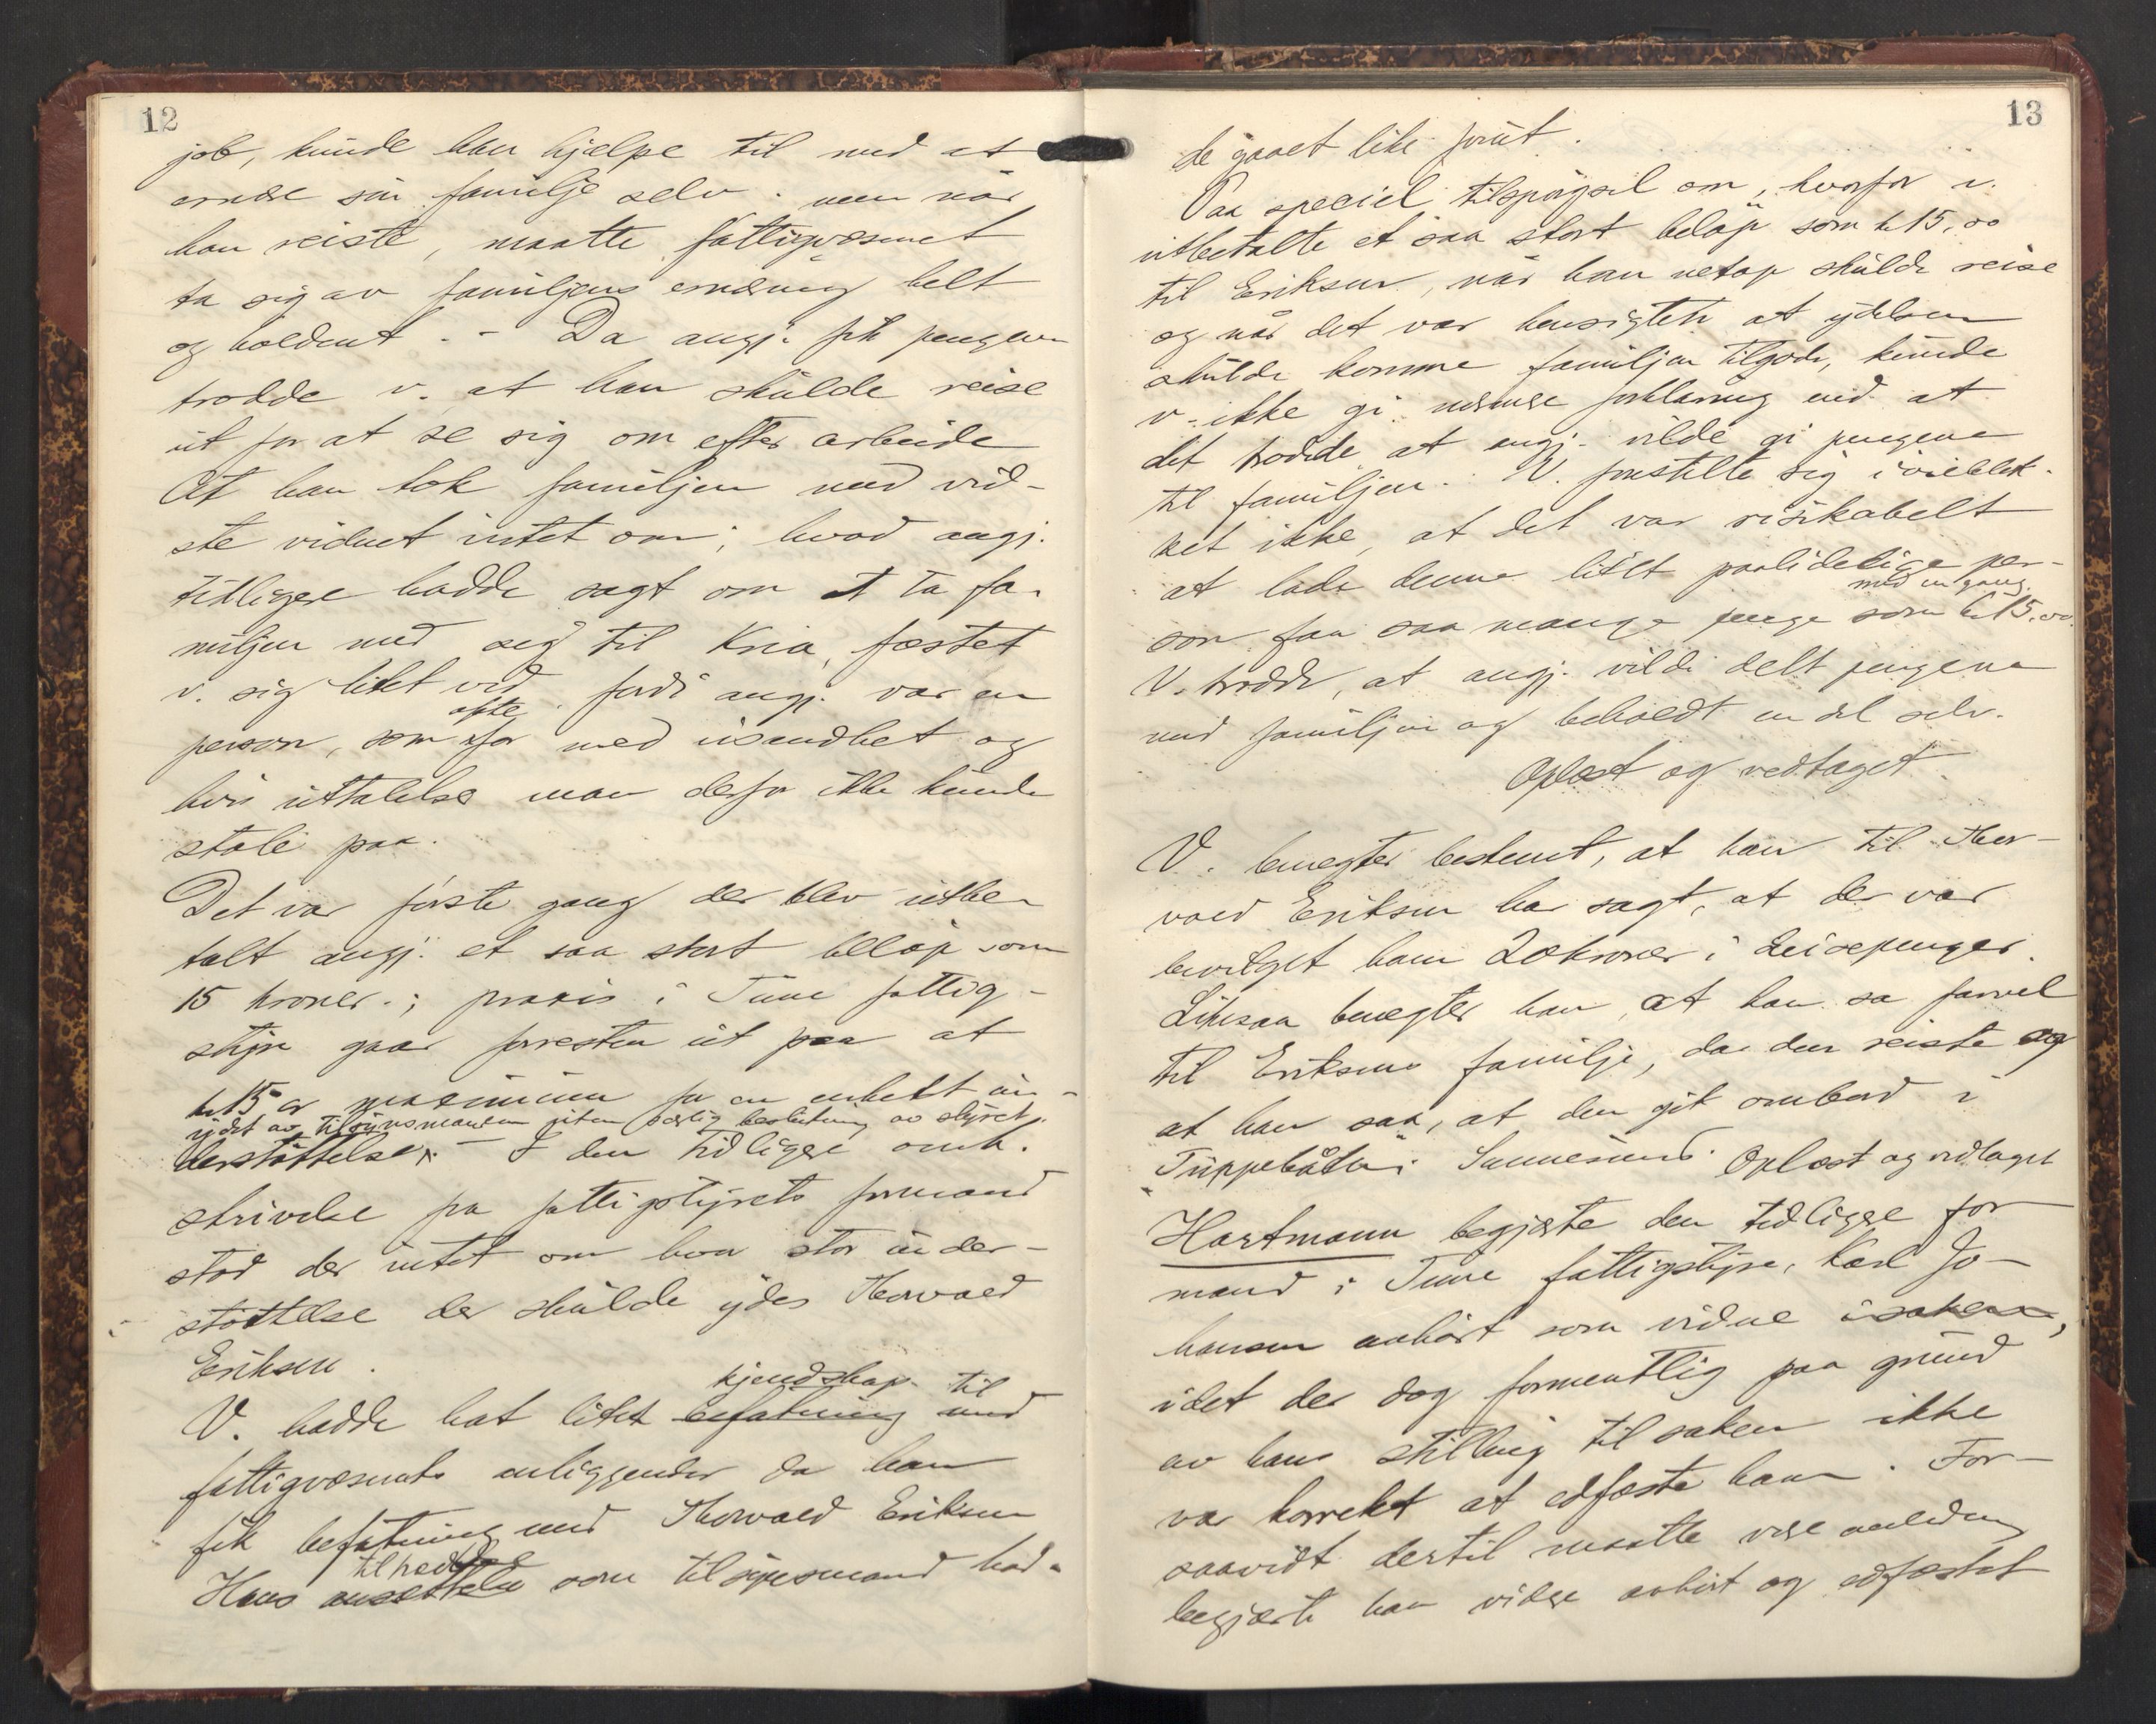 12
job, kunde han hjelpe til med at
ernære sin familje selv; men når
han reiste, maatte fattigvæsenet
ta sig av familjens ernæring helt
og holdent. - Da angj. fik pengene
trodde v. at han skulde reise
ut for at se sig om efter arbeide
At han tok familjen med vid-
ste vidnet intet om; hvad angj.
tidligere hadde sagt om at ta fa-
miljen med sig til Kria, fæstet
v. sig litet ved fordi angj. var en
person, som ofte for med usandhet og
hvis uttalelse man derfor ikke kunde
stole paa.
Det var første gang der blev utbe-
talt angj. et saa stort beløp som
15 kroner.; praxis i Tune fattig-
styre gaar forresten ut paa at
kr 15 er maximum for en enkelt un-
ydet av tilsynsmanden uten særlig beslutning av styret.
derstøttelse. - I den tidligere omh.
skrivelse fra fattigstyrets formand
stod der intet om hvor stor under-
støttelse der skulde ydes Thorvald
Eriksen.
kjendskap til
V. hadde hat litet befatning med
fattigvæsenets anliggender da han
fik befatning med Thorvald Eriksen
tiltræden
Hans ansettelse som tilsynsmand had-
13
de gaaet like forut.
Paa speciel tilspørgsel om, hvorfor v.
utbetalte et saa stort beløp som kr 15,00
til Eriksen, når han netop skulde reise
og når det var hensigten at ydelsen
skulde komme familjen tilgode, kunde
v. ikke gi nærmere forklaring end at
det trodde at angj. vilde gi pengene
til familjen. V. forestilte sig i øieblik-
ket ikke, at det var risikabelt
at lade denne litet paalidelige per-
med en gang.
son faa saa mange penge som kr 15.00.
V. trodde, at angj. vilde delt pengene
med familjen og beholdt en del selv.
Oplæst og vedtaget.
V. benegter bestemt, at han til Thor-
vald Eriksen har sagt, at der var
bevilget ham 20 kroner i Reisepenger.
Likesaa benegter han, at han sa farvel
til Eriksens familje, da den reiste og
at han saa, at den gik ombord i
"Tuppebåten" i Sannesund. Oplæst og vedtaget
Hartmann begjærte den tidligere for
mand i Tune fattigstyre, Karl Jo-
hansen avhørt som vidne i saken,
idet der dog formentlig paa grund
av hans stilling til saken ikke
var korrekt at edfæste ham. For-
saavidt dertil maatte være anledning
begjærte han videre avhørt og edfæstet